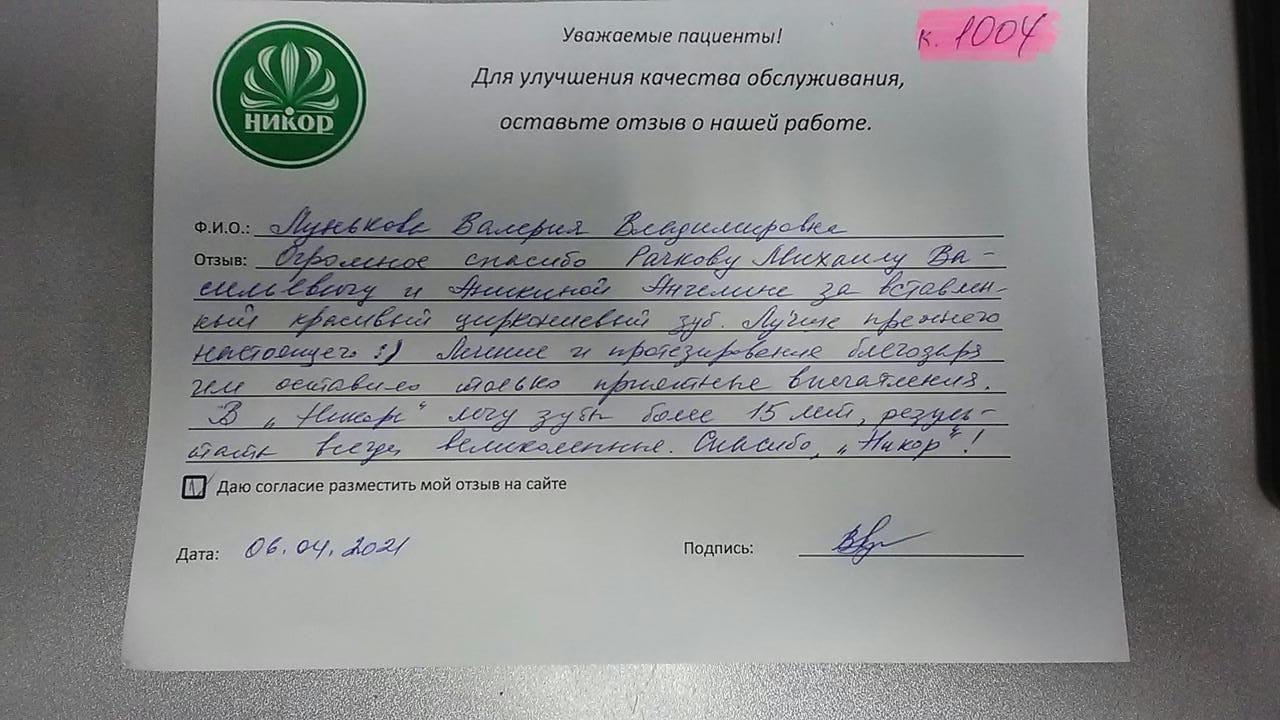 НИКОР
Уважаемые пациенты!
к. 1004
Для улучшения качества обслуживания,
оставьте отзыв о нашей работе.
Ф.И.О.: Лунькова Валерия Владимировна
Отзыв: Огромное спасибо Рачкову Михаилу Ва-
сильевичу и Аникиной Ангелине за вставлен-
ный красивый циркониевый зуб. Лучше прежнего
настоящего :) Лечение и протезирование благодаря
им оставило только приятные впечатления.
В „Никор“ лечу зубы более 15 лет, резуль-
таты всегда великолепные. Спасибо, „Никор“!
Даю согласие разместить мой отзыв на сайте
Дата: 06.04.2021
Подпись: